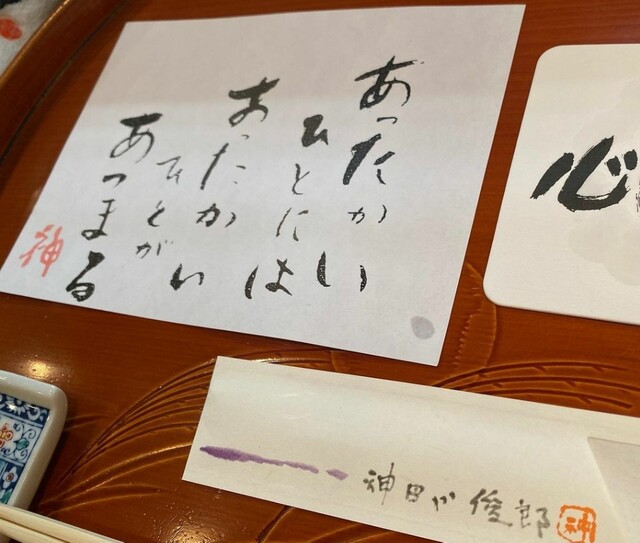 あったかい
ひとには
あったかい
ひとが
あつまる
神
心
神田川俊郎
神